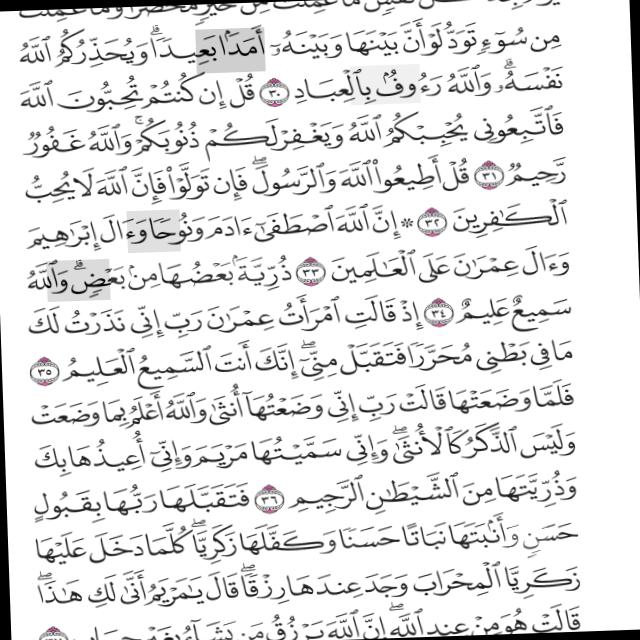 مِن سُوٓءٍ تَوَدُّ لَوْ أَنَّ بَيْنَهَا وَبَيْنَهُۥٓ أَمَدًۢا بَعِيدًاۗ وَيُحَذِّرُكُمُ ٱللَّهُ
نَفْسَهُۥۗ وَٱللَّهُ رَءُوفُۢ بِٱلْعِبَادِ ٣٠ قُلْ إِن كُنتُمْ تُحِبُّونَ ٱللَّهَ
فَٱتَّبِعُونِى يُحْبِبْكُمُ ٱللَّهُ وَيَغْفِرْ لَكُمْ ذُنُوبَكُمْۚ وَٱللَّهُ غَفُورٌ
رَّحِيمٌ ٣١ قُلْ أَطِيعُوا۟ ٱللَّهَ وَٱلرَّسُولَۖ فَإِن تَوَلَّوْا۟ فَإِنَّ ٱللَّهَ لَا يُحِبُّ
ٱلْكَٰفِرِينَ ٣٢ ۞ إِنَّ ٱللَّهَ ٱصْطَفَىٰٓ ءَادَمَ وَنُوحًا وَءَالَ إِبْرَٰهِيمَ
وَءَالَ عِمْرَٰنَ عَلَى ٱلْعَٰلَمِينَ ٣٣ ذُرِّيَّةَۢ بَعْضُهَا مِنۢ بَعْضٍۗ وَٱللَّهُ
سَمِيعٌ عَلِيمٌ ٣٤ إِذْ قَالَتِ ٱمْرَأَتُ عِمْرَٰنَ رَبِّ إِنِّى نَذَرْتُ لَكَ
مَا فِى بَطْنِى مُحَرَّرًا فَتَقَبَّلْ مِنِّىٓۖ إِنَّكَ أَنتَ ٱلسَّمِيعُ ٱلْعَلِيمُ ٣٥
فَلَمَّا وَضَعَتْهَا قَالَتْ رَبِّ إِنِّى وَضَعْتُهَآ أُنثَىٰ وَٱللَّهُ أَعْلَمُ بِمَا وَضَعَتْ
وَلَيْسَ ٱلذَّكَرُ كَٱلْأُنثَىٰۖ وَإِنِّى سَمَّيْتُهَا مَرْيَمَ وَإِنِّىٓ أُعِيذُهَا بِكَ
وَذُرِّيَّتَهَا مِنَ ٱلشَّيْطَٰنِ ٱلرَّجِيمِ ٣٦ فَتَقَبَّلَهَا رَبُّهَا بِقَبُولٍ
حَسَنٍ وَأَنۢبَتَهَا نَبَاتًا حَسَنًا وَكَفَّلَهَا زَكَرِيَّاۖ كُلَّمَا دَخَلَ عَلَيْهَا
زَكَرِيَّا ٱلْمِحْرَابَ وَجَدَ عِندَهَا رِزْقًاۖ قَالَ يَٰمَرْيَمُ أَنَّىٰ لَكِ هَٰذَاۖ
قَالَتْ هُوَ مِنْ عِندِ ٱللَّهِۖ إِنَّ ٱللَّهَ يَرْزُقُ مَن يَشَآءُ بِغَيْرِ حِسَابٍ